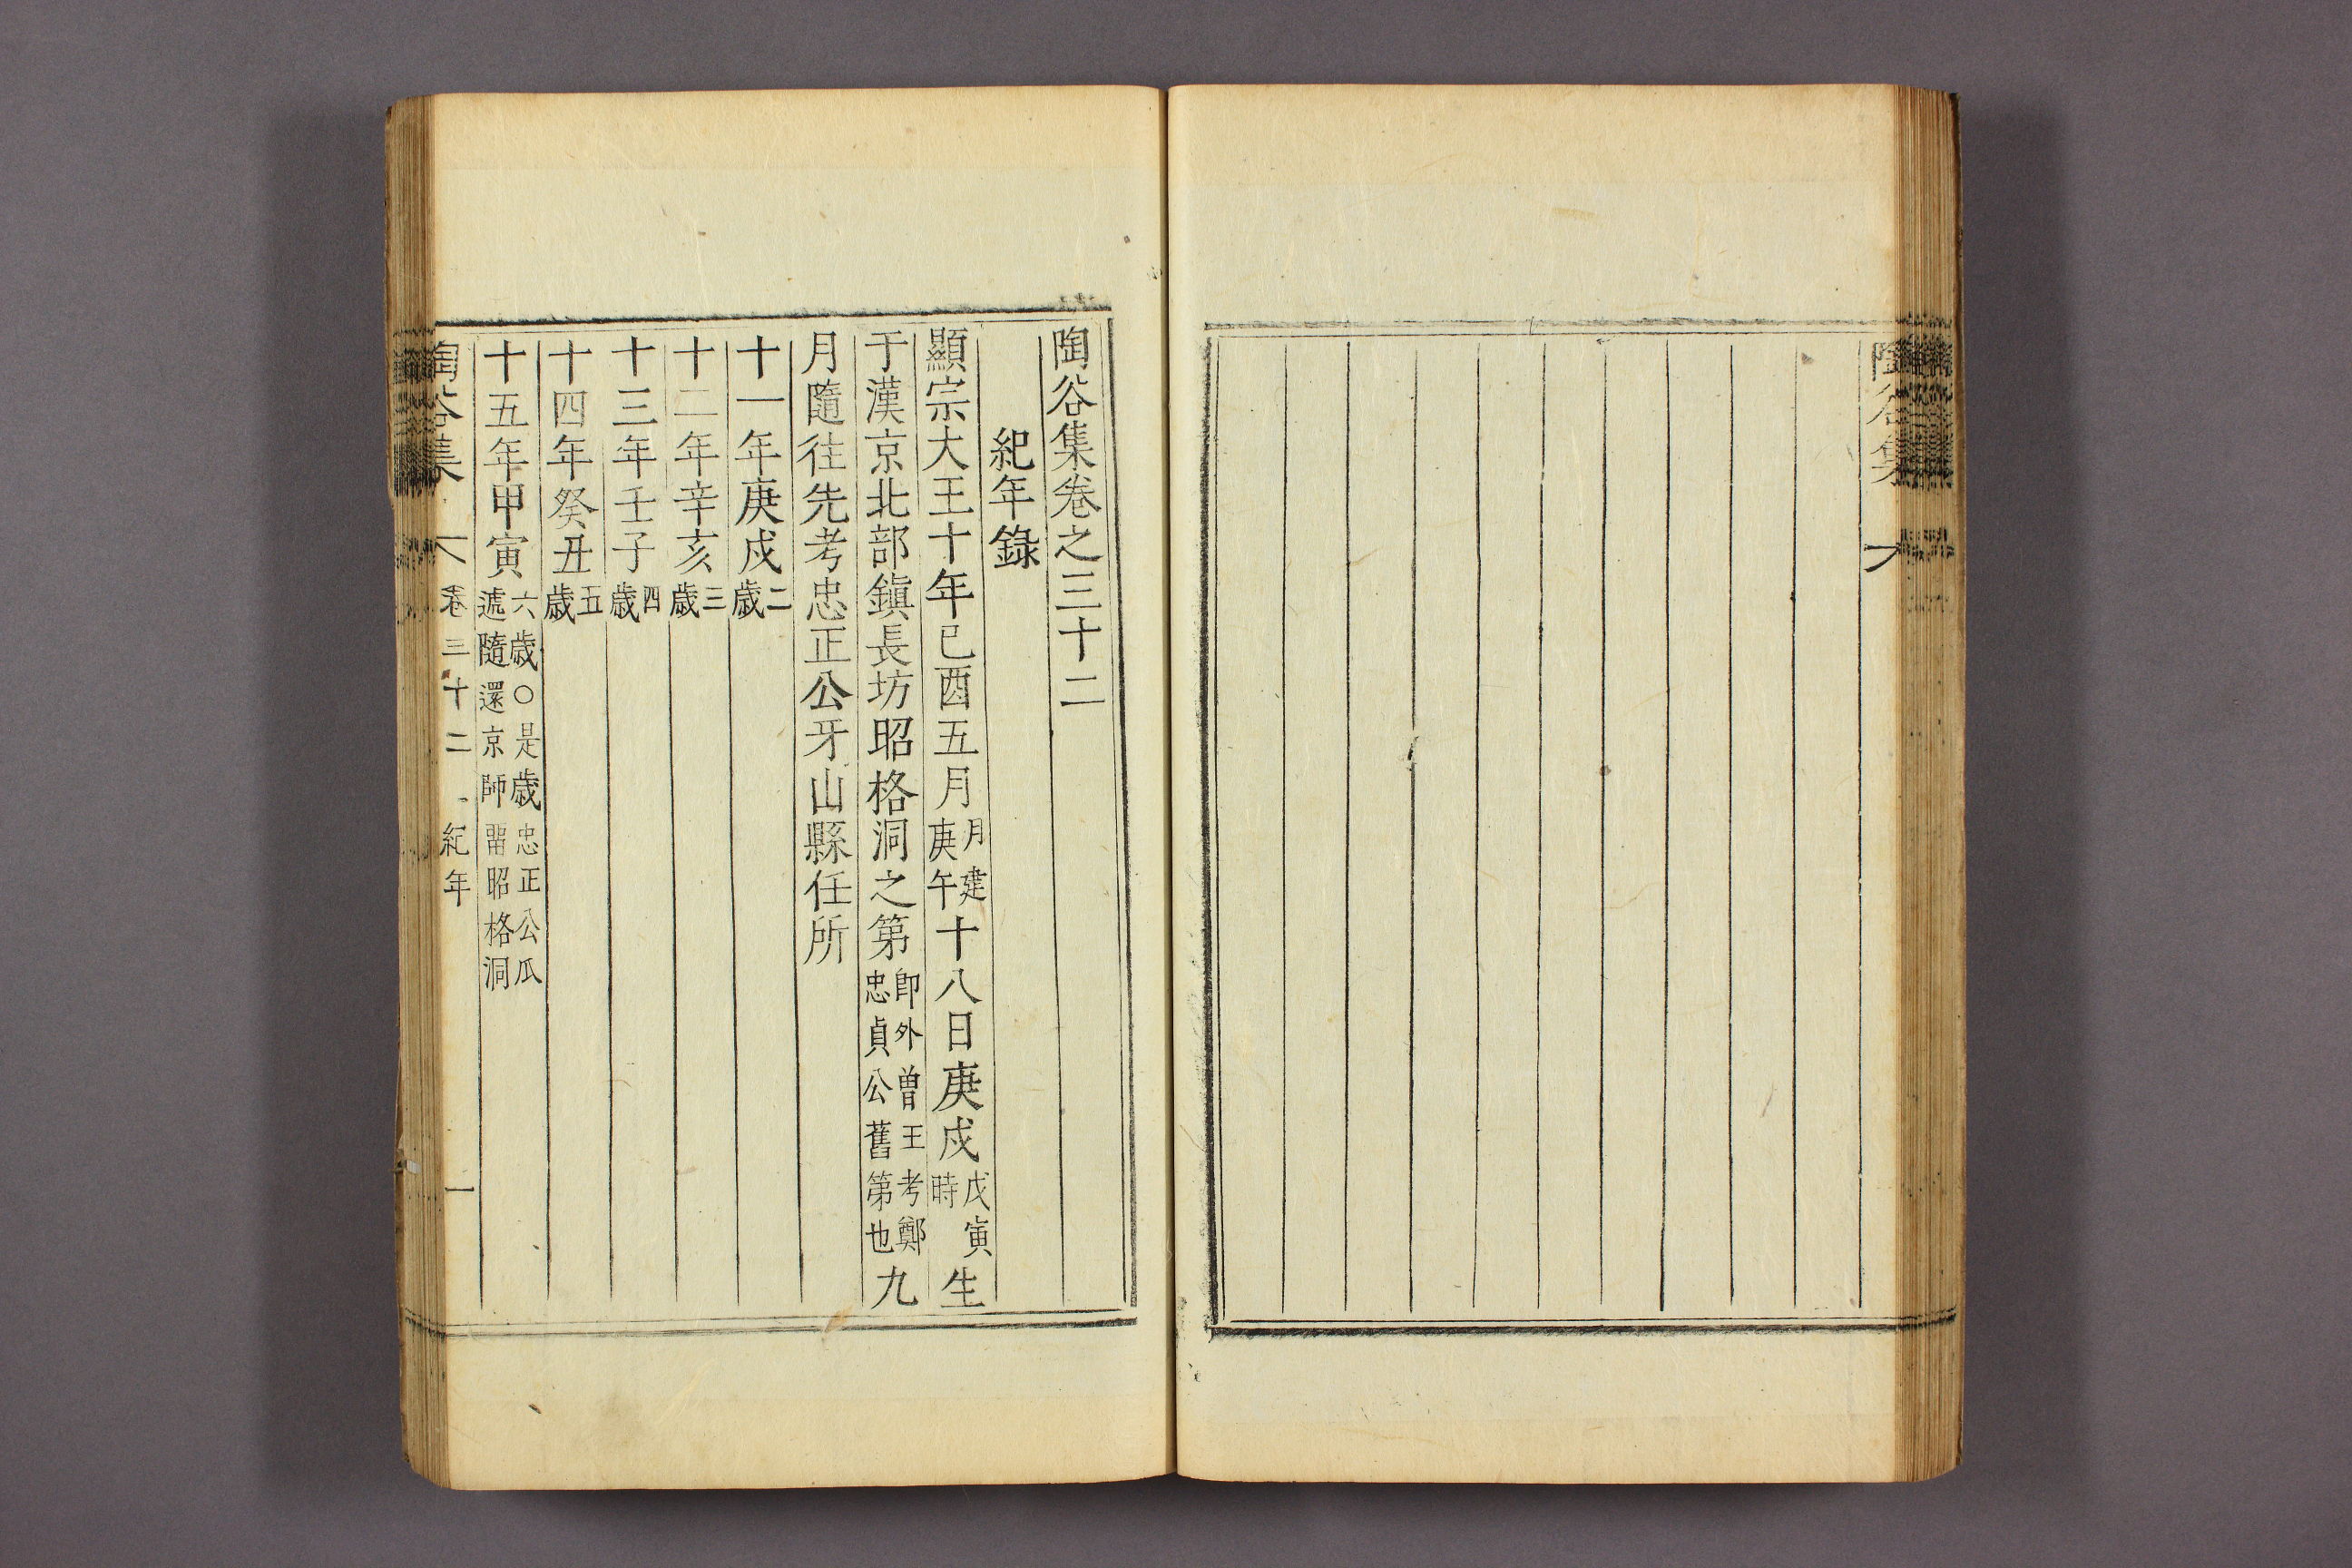 陶谷集
陶谷集卷之三十二
紀年錄
顯宗大王十年己酉五月月建庚午十八日庚戌戊寅時生
于漢京北部鎭長坊昭格洞之第卽外曾王考鄭忠貞公舊第也九
月隨往先考忠正公牙山縣任所
十一年庚戌二歲
十二年辛亥三歲
十三年壬子四歲
十四年癸丑五歲
十五年甲寅六歲○是歲忠正公瓜遞隨還京師留昭格洞
陶谷集 卷三十二 紀年 一